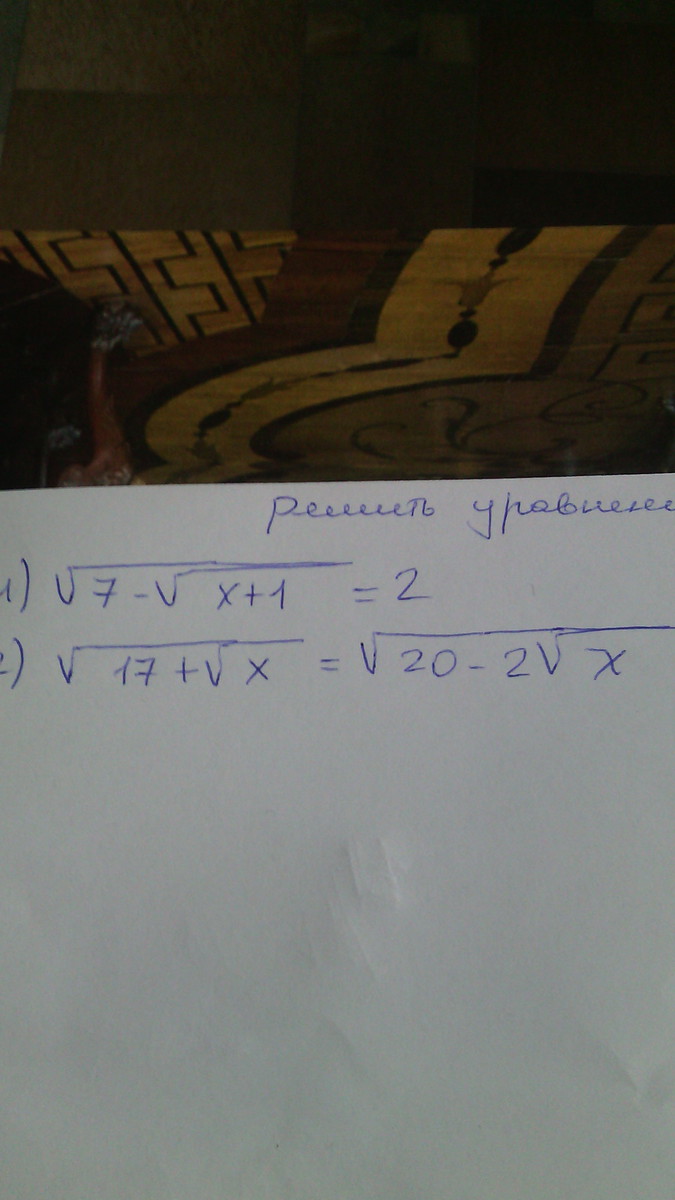 решить уравнени
1) √7-√x+1 = 2
2) √17+√x = √20-2√x